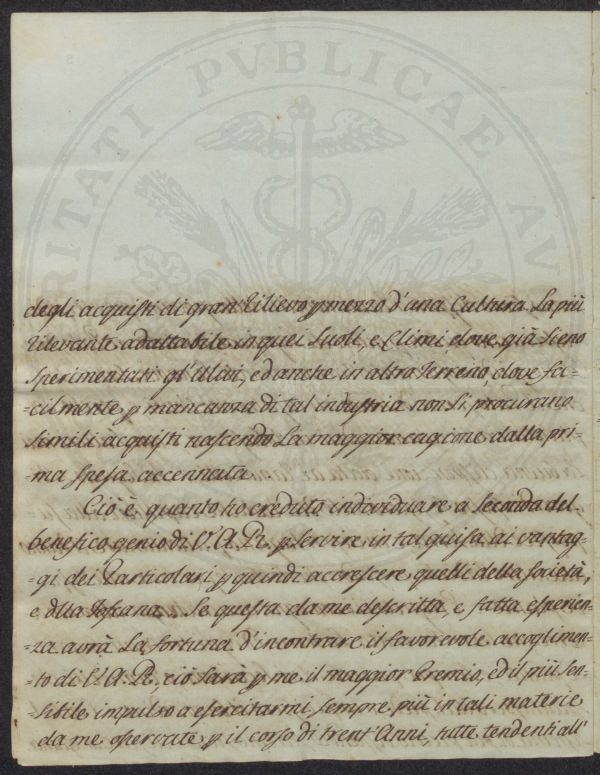 RITATI PVBLICAE AV
degli acquisti di gran rilievo p mezzo d'una Cultura La più
rilevante adattabile in quei Suoli, e Climi dove già sieno
sperimentati gl'Ulivi, ed anche in altro Terreno, dove fa-
-cilmente p mancanza di tal industria non si procurano
simili acquisti nascendo La maggior cagione dalla pri-
-ma spesa accennata
Ciò è quanto ho creduto individuare a seconda del
benefico genio di V. A. R. p servire in tal guisa ai vantag-
-gi dei Particolari p quindi accrescere quelli della società,
e dlla Toscana. Se questa da me descritta, e fatta esperien-
-za avrà La fortuna d'incontrare il favorevole accoglimen-
-to di V. A. R., ciò sarà p me il maggior Premio, ed il più sen-
-sibile impulso a esercitarmi sempre più in tali materie
da me osservate p il corso di trent'Anni, tutte tendenti all'